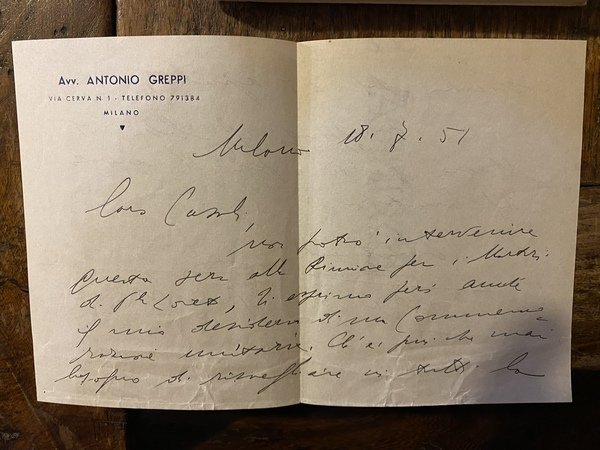 Avv. ANTONIO GREPPI
VIA CERVA N. 1 - TELEFONO 791384
MILANO
Milano 18. 7. 51
Caro Casali,
non potrò intervenire
questa sera alla Riunione per i Martiri
di P.le Loreto, ti esprimo però anche
il mio desiderio di una Commemo
razione unitaria. C'è più che mai
bisogno di risvegliare in tutti la